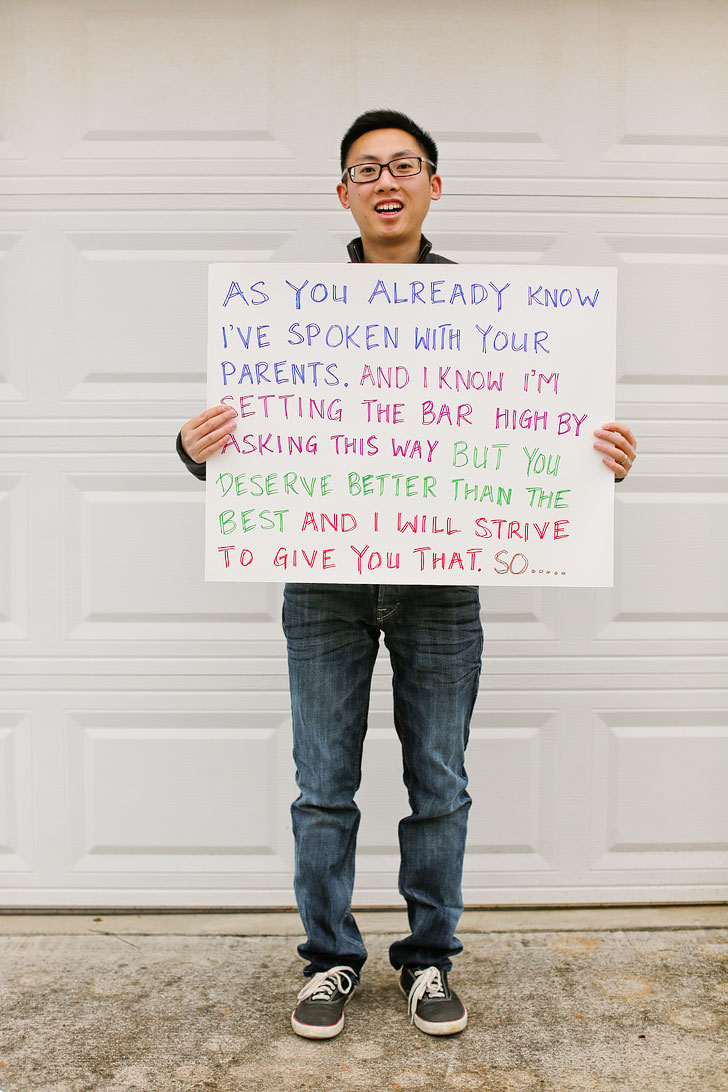 AS YOU ALREADY KNOW
I'VE SPOKEN WITH YOUR
PARENTS. AND I KNOW I'M
SETTING THE BAR HIGH BY
ASKING THIS WAY BUT YOU
DESERVE BETTER THAN THE
BEST AND I WILL STRIVE
TO GIVE YOU THAT. SO.....